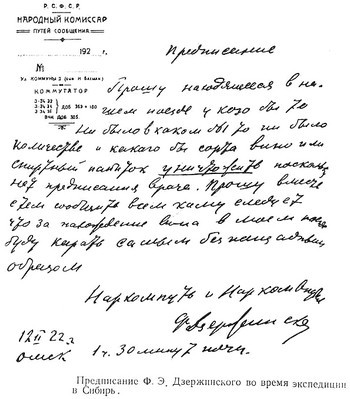 Р. С. Ф. С. Р.
НАРОДНЫЙ КОМИССАР
ПУТЕЙ СООБЩЕНИЯ
192 г.
№
КОММУТАТОР
ДОБ 363 и 160
Предписание
Прошу находящееся в на-
шем поезде у кого бы то
ни было в каком бы то ни было
количестве и какого бы сорта вино или
спиртный напиток уничтожить поскольку
нет предписания врача. Прошу вместе
с тем сообщить всем кому следует
что за нахождение вина в моем поезде
буду карать самым беспощадным
образом
Наркомпуть и Наркомвнудел
Ф Дзержинский
12/II 22 г.
Омск 1 ч. 30 минут ночи.
Предписание Ф. Э. Дзержинского во время экспедиции
в Сибирь.